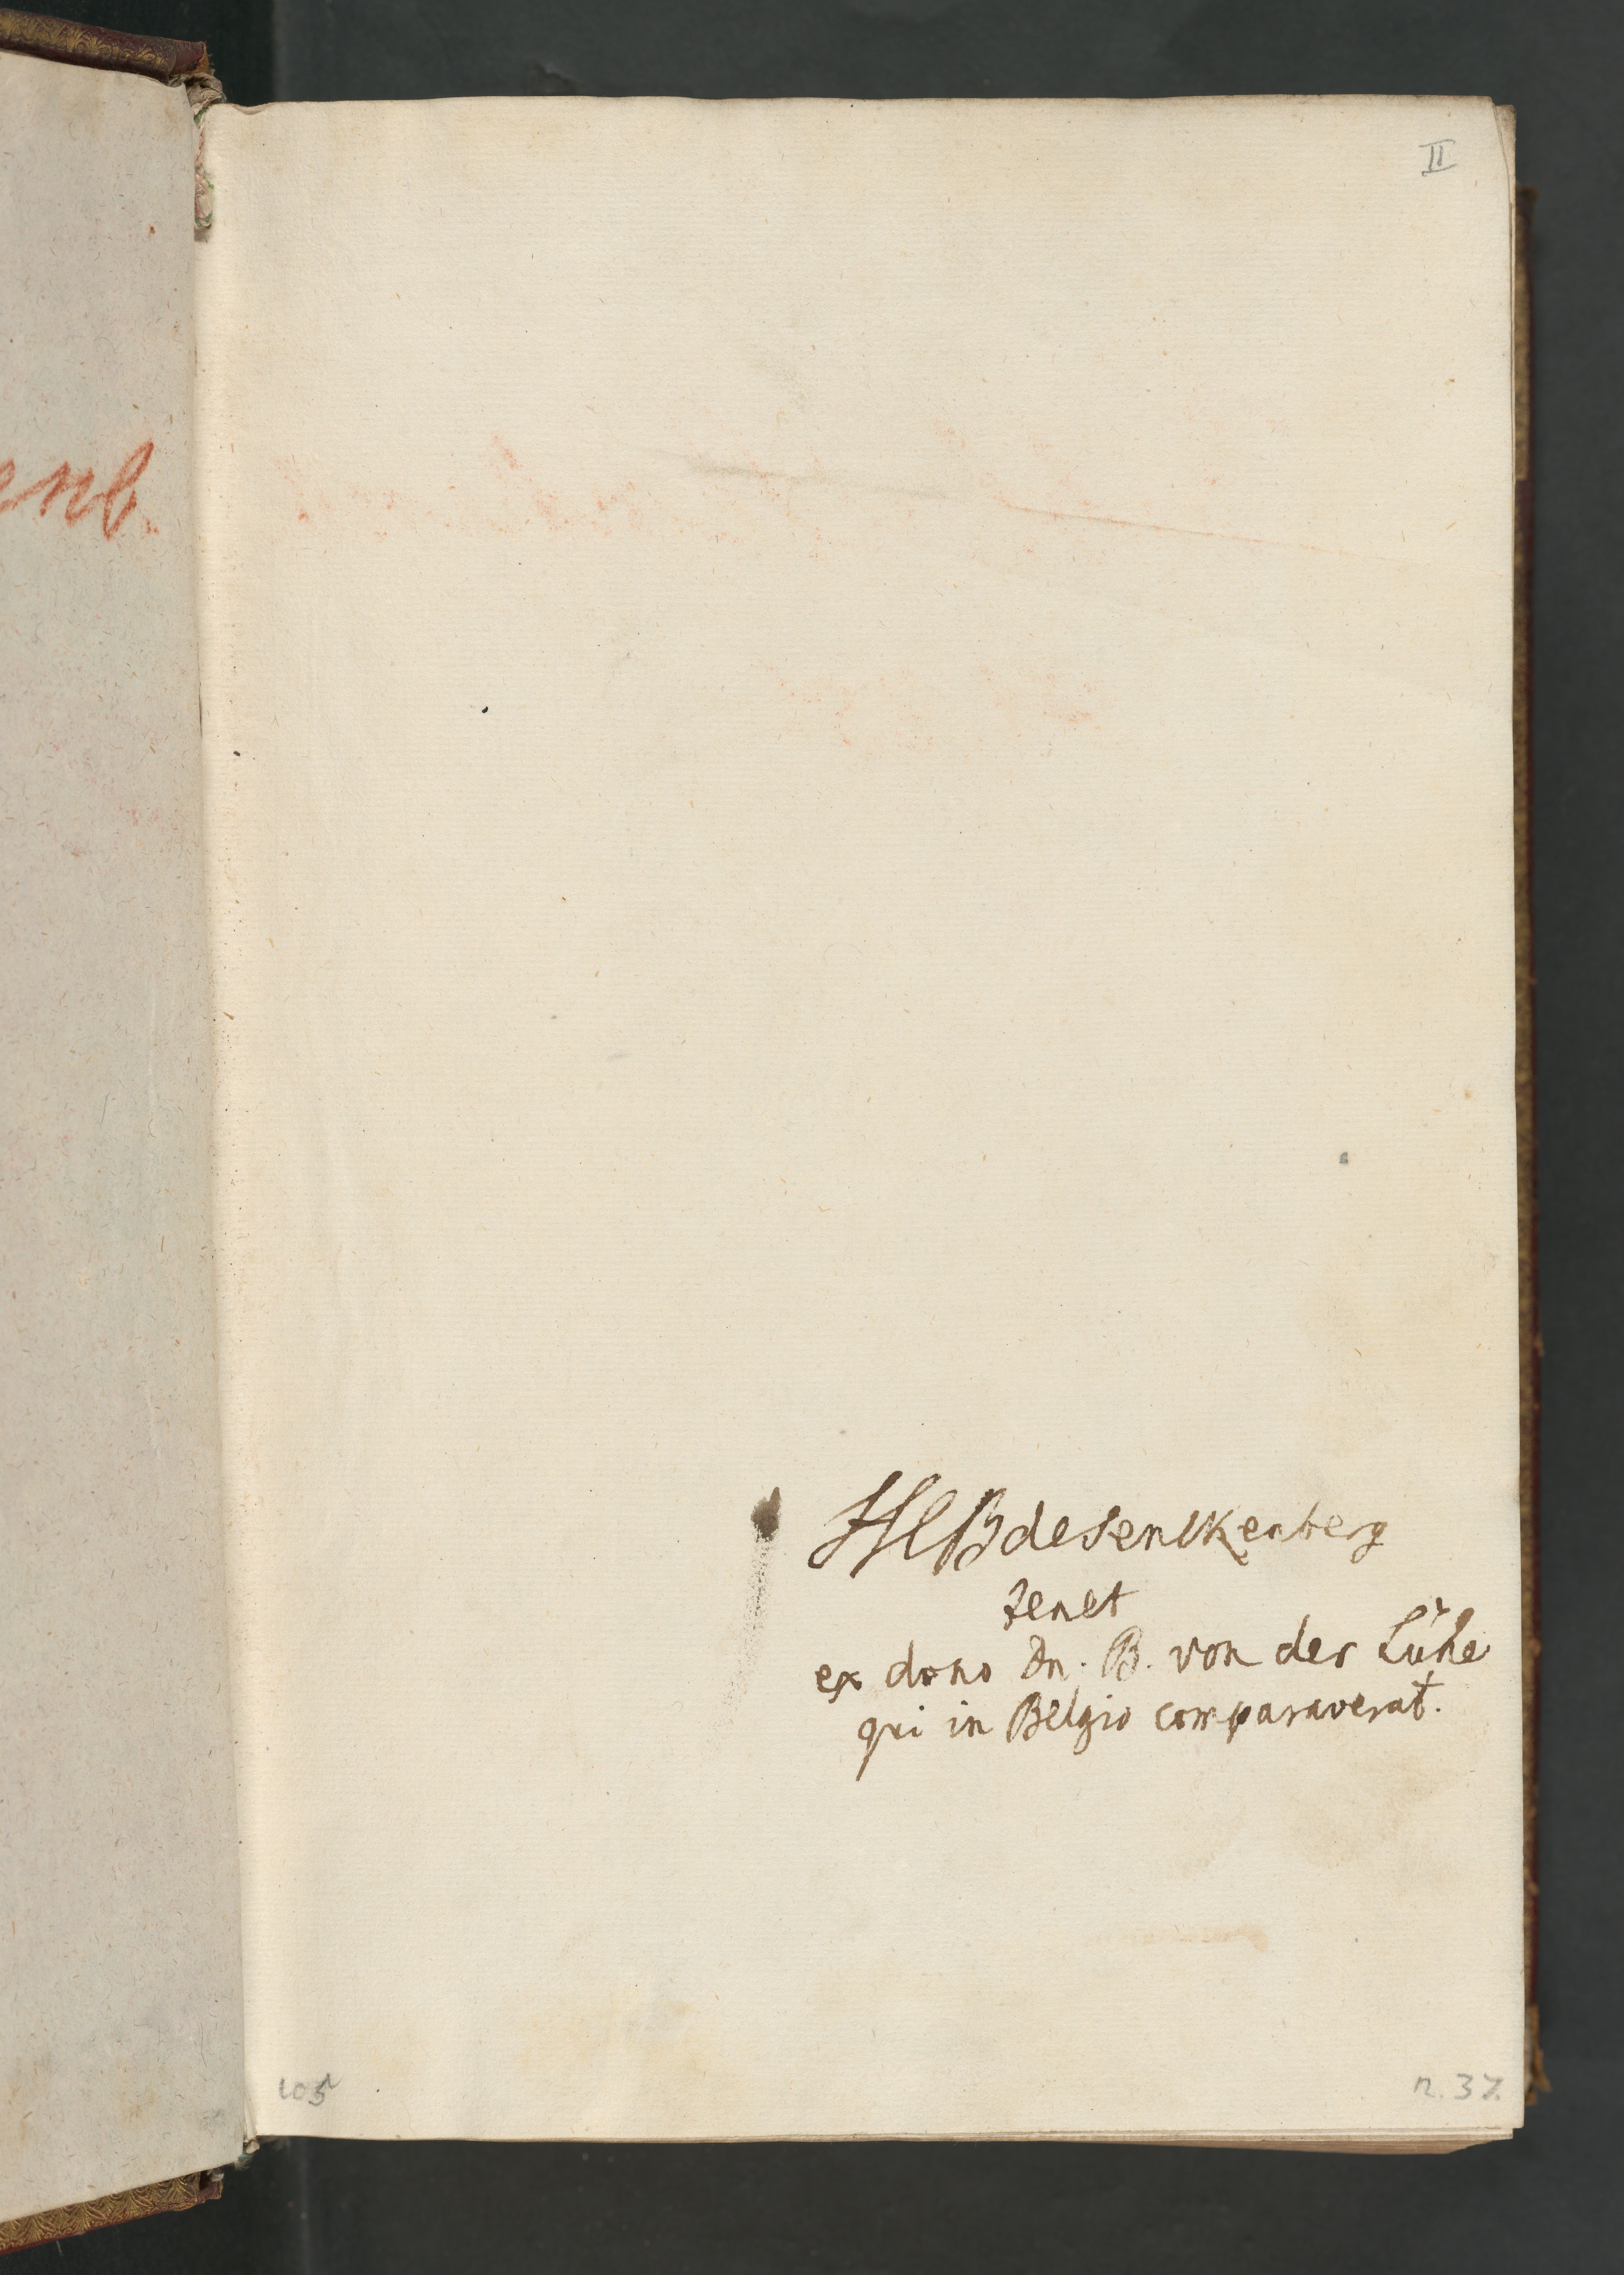 enb.
II
HCB de Senckenberg
tenet
ex dono Dn. B. von der Lühe
qui in Belgio comparaverat.
105
n. 37.